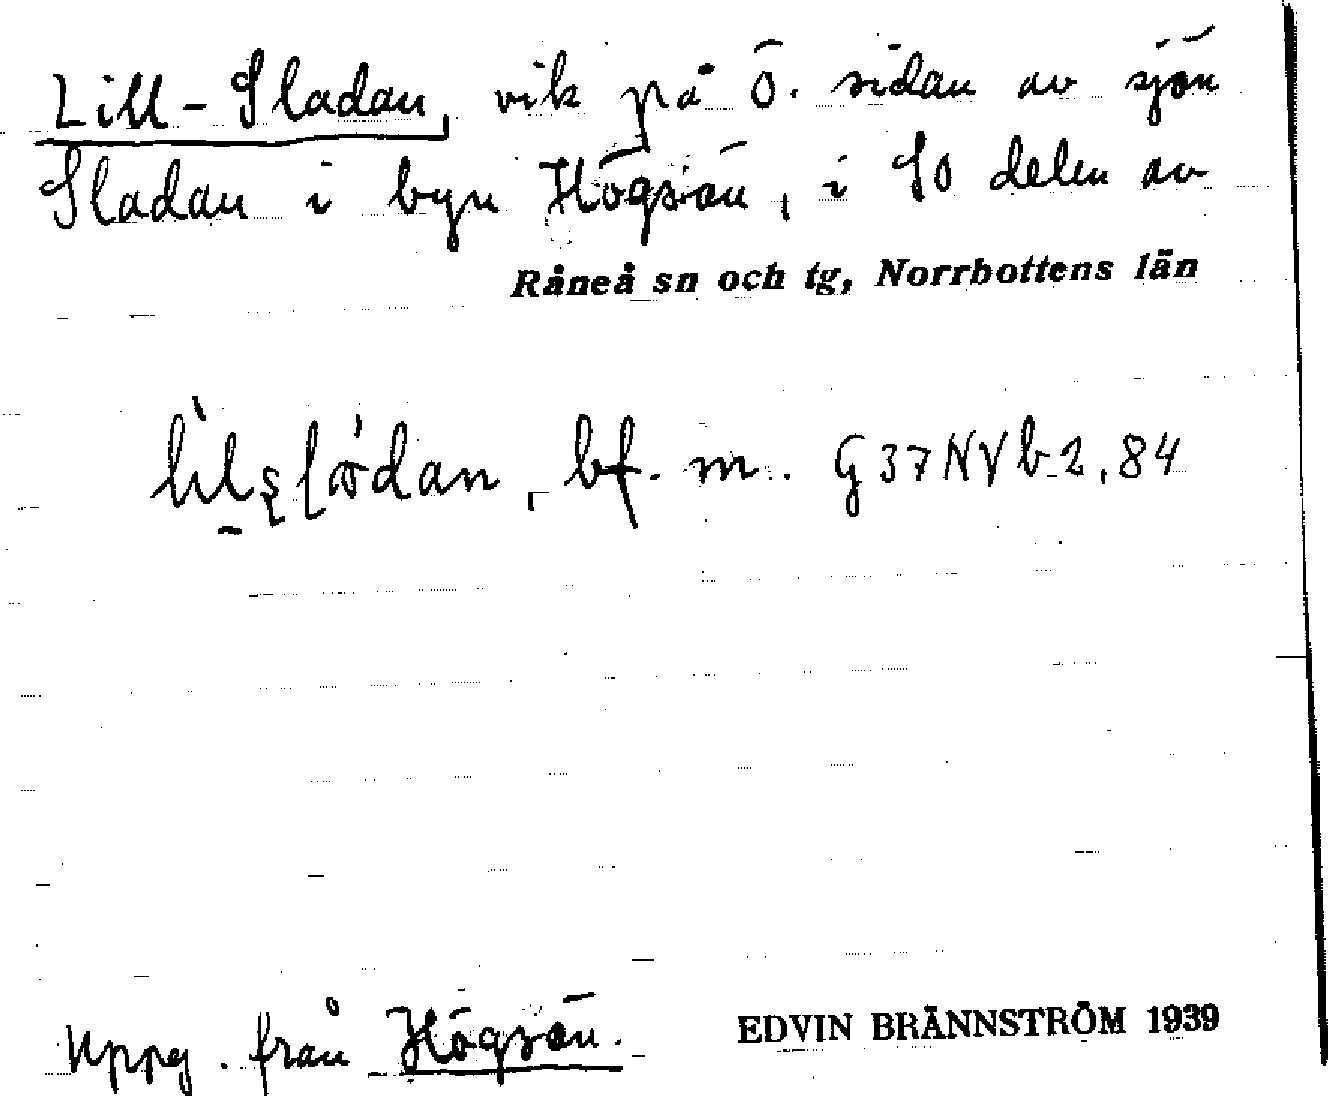 Lill-Sladan, vik på Ö. sidan av sjön
Sladan i byn Högsön, i SO delen av
Råneå sn och tg, Norrbottens län
bf. m. G37NVb2, 84
Uppg. från Högsön.
EDVIN BRÄNNSTRÖM 1939